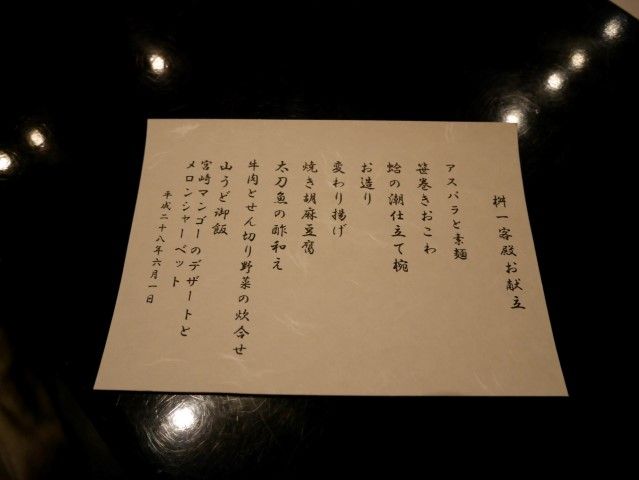 桝一客殿お献立
アスパラと素麺
笹巻きおこわ
蛤の潮仕立て椀
お造り
変わり揚げ
焼き胡麻豆腐
太刀魚の酢和え
牛肉とせん切り野菜の炊合せ
山うど御飯
宮崎マンゴーのデザートと
メロンシャーベット
平成二十八年六月一日